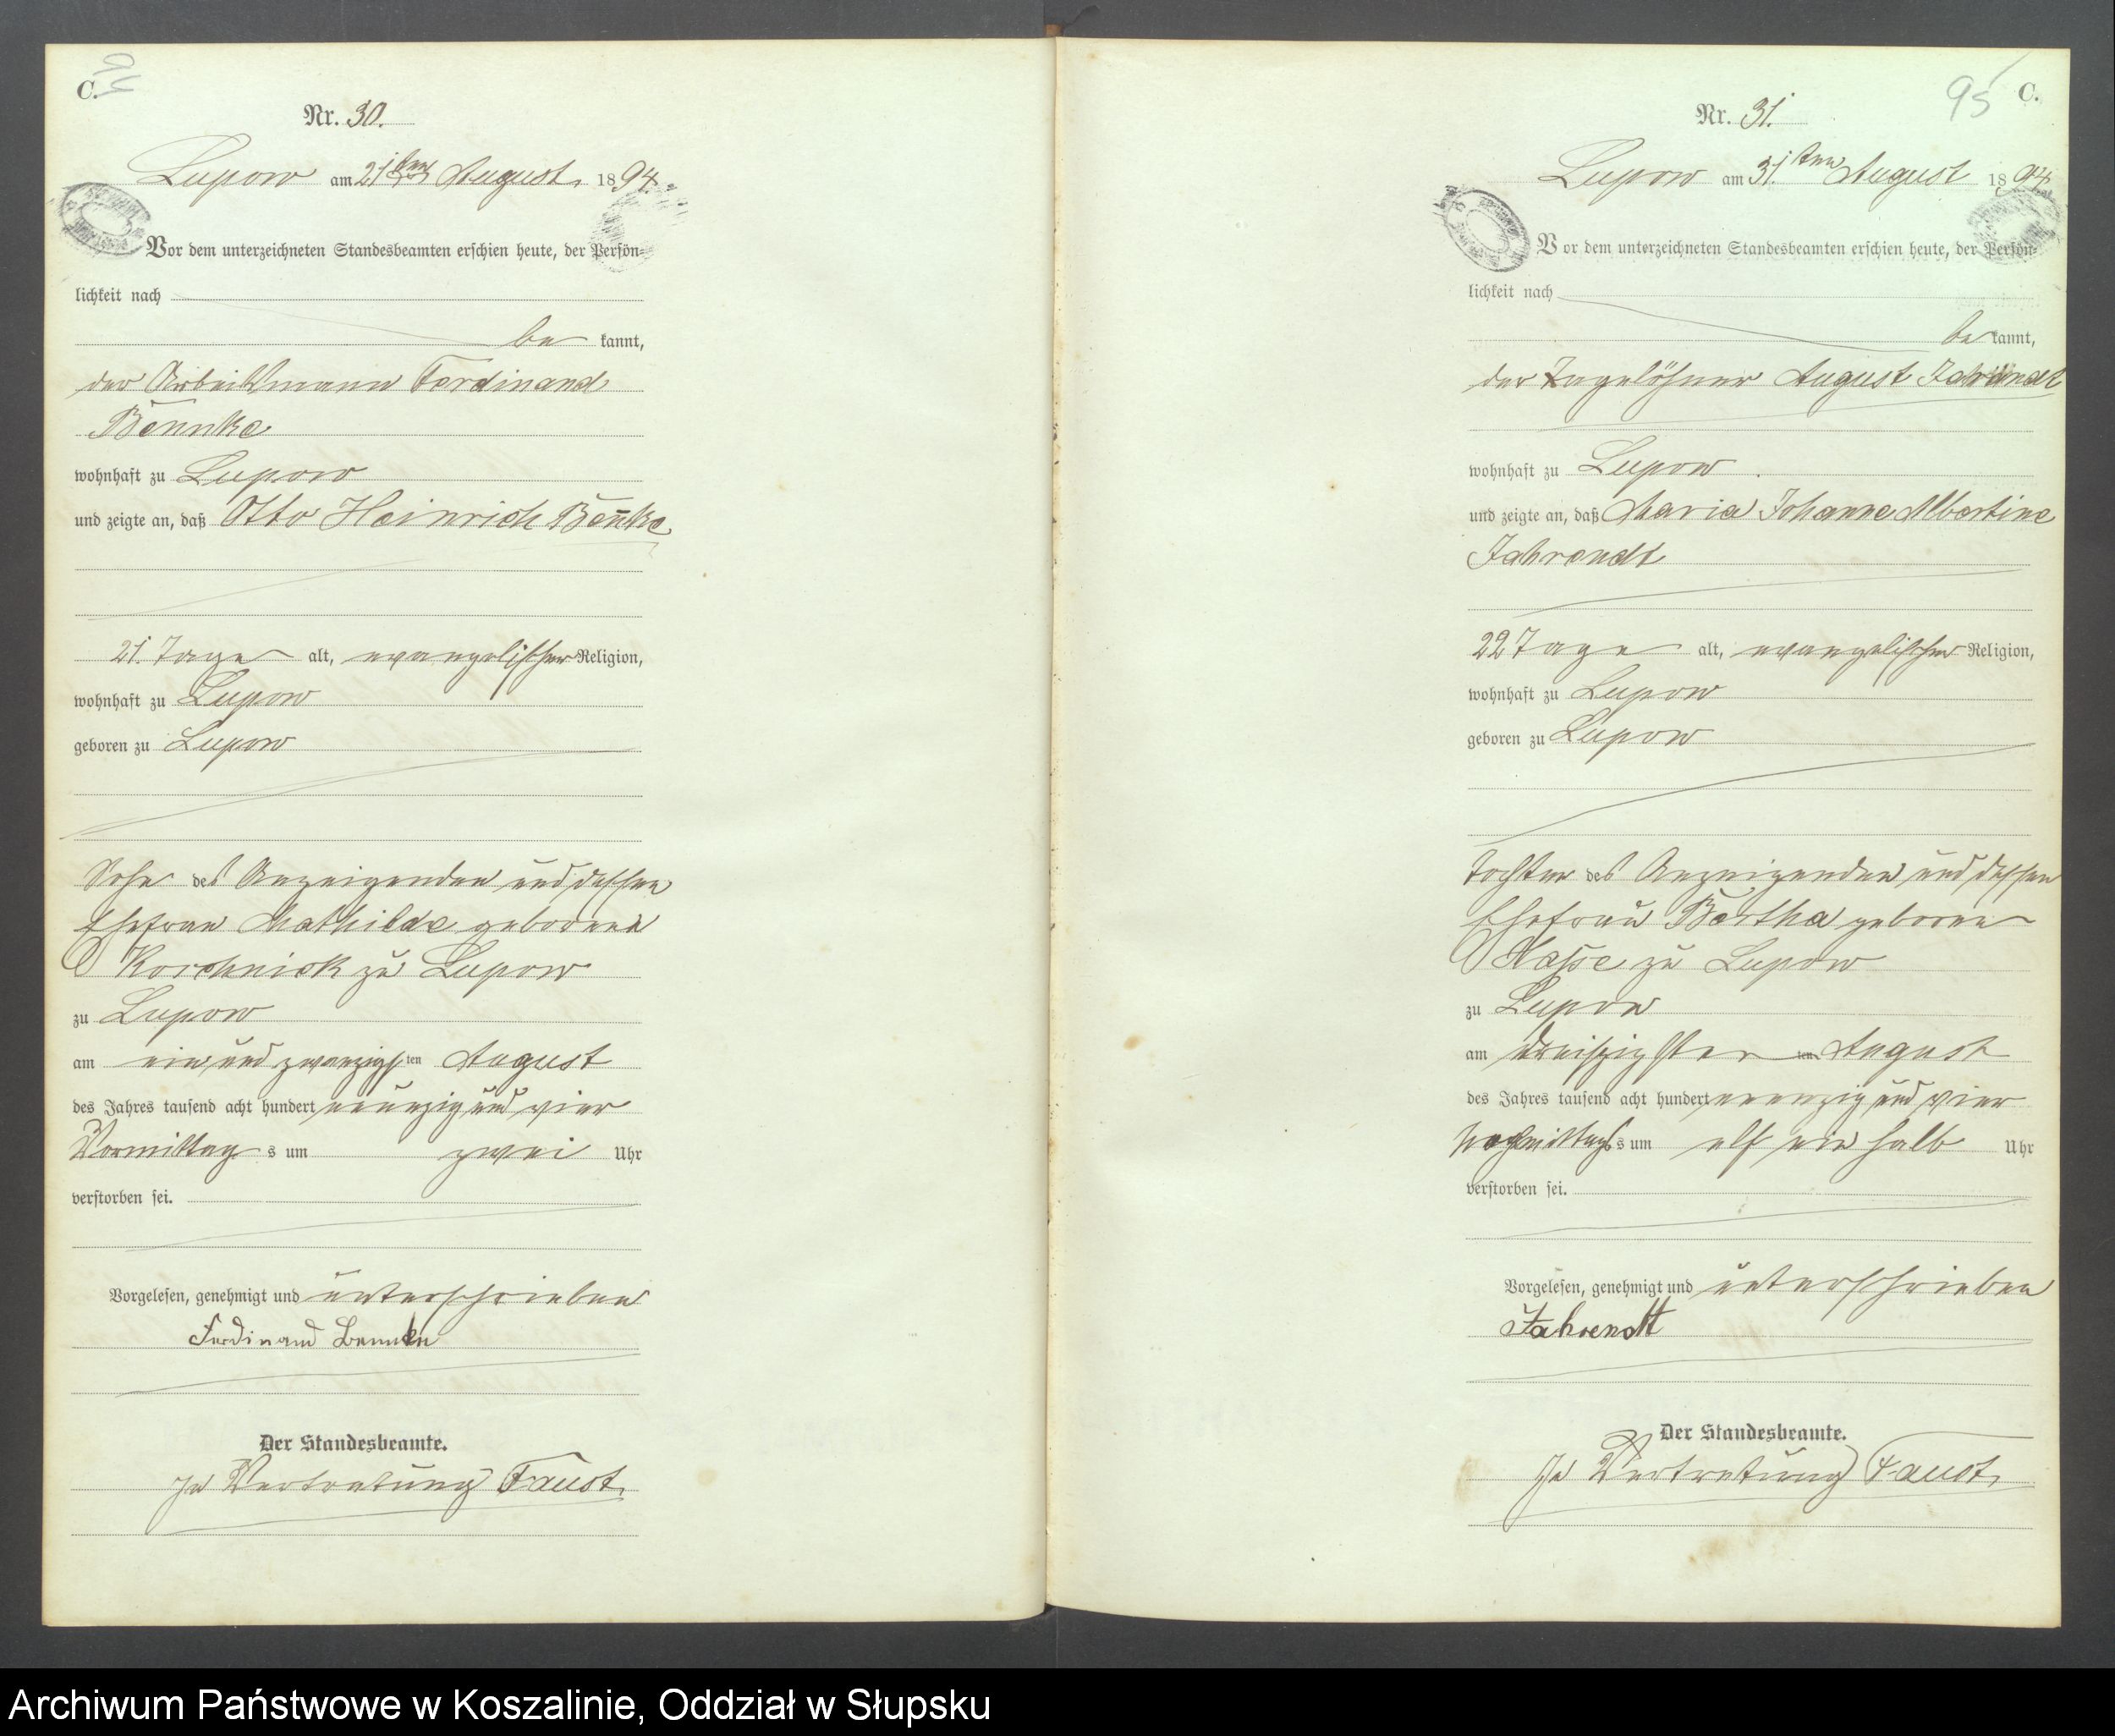 C.
Nr. 30.
Lupow am 21ten August 1894.
Vor dem unterzeichneten Standesbeamten erschien heute, der Persön-
lichkeit nach
be kannt,
der Arbeitsmann Ferdinand
Bennke
wohnhaft zu Lupow
und zeigte an, daß Otto Heinrich Beñke
21. Tage alt, evangelischer Religion,
wohnhaft zu Lupow
geboren zu Lupow
Sohn des Anzeigenden und dessen
Ehefrau Mathilde geborene
Korchnick zu Lupow
zu Lupow
am ein und zwanzigsten August
des Jahres tausend acht hundert neunzig und vier
Vormittag s um zwei Uhr
verstorben sei.
Vorgelesen, genehmigt und unterschrieben
Ferdinand Bennke
Der Standesbeamte.
In Vertretung Faust.
95 C.
Nr. 31.
Lupow am 31.ten August 1894
Vor dem unterzeichneten Standesbeamten erschien heute, der Persön-
lichkeit nach
be kannt,
der Tagelöhner August Jahrendt
wohnhaft zu Lupow
und zeigte an, daß Maria Johanne Albertine
Jahrendt
22 Tage alt, evangelischer Religion,
wohnhaft zu Lupow
geboren zu Lupow
Tochter des Anzeigenden und dessen
Ehefrau Bertha geborene
Hasse zu Lupow
zu Lupow
am dreißigsten ten August
des Jahres tausend acht hundert neunzig und vier
Nachmittags s um elf ein halb Uhr
verstorben sei.
Vorgelesen, genehmigt und unterschrieben
Jahrendt
Der Standesbeamte.
In Vertretung Faust.
Archiwum Państwowe w Koszalinie, Oddział w Słupsku